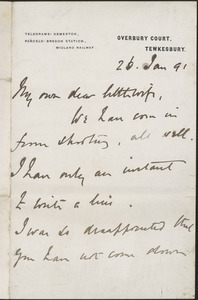 TELEGRAMS: KEMERTON,
BECKFORD STATION,
MIDLAND RAILWAY.
OVERBURY COURT,
TEWKESBURY.
26. Jan 91
My own dear little wife,
We have come in
from shooting, all well.
I have only an instant
to write a line.
I was so disappointed that
you have not come down